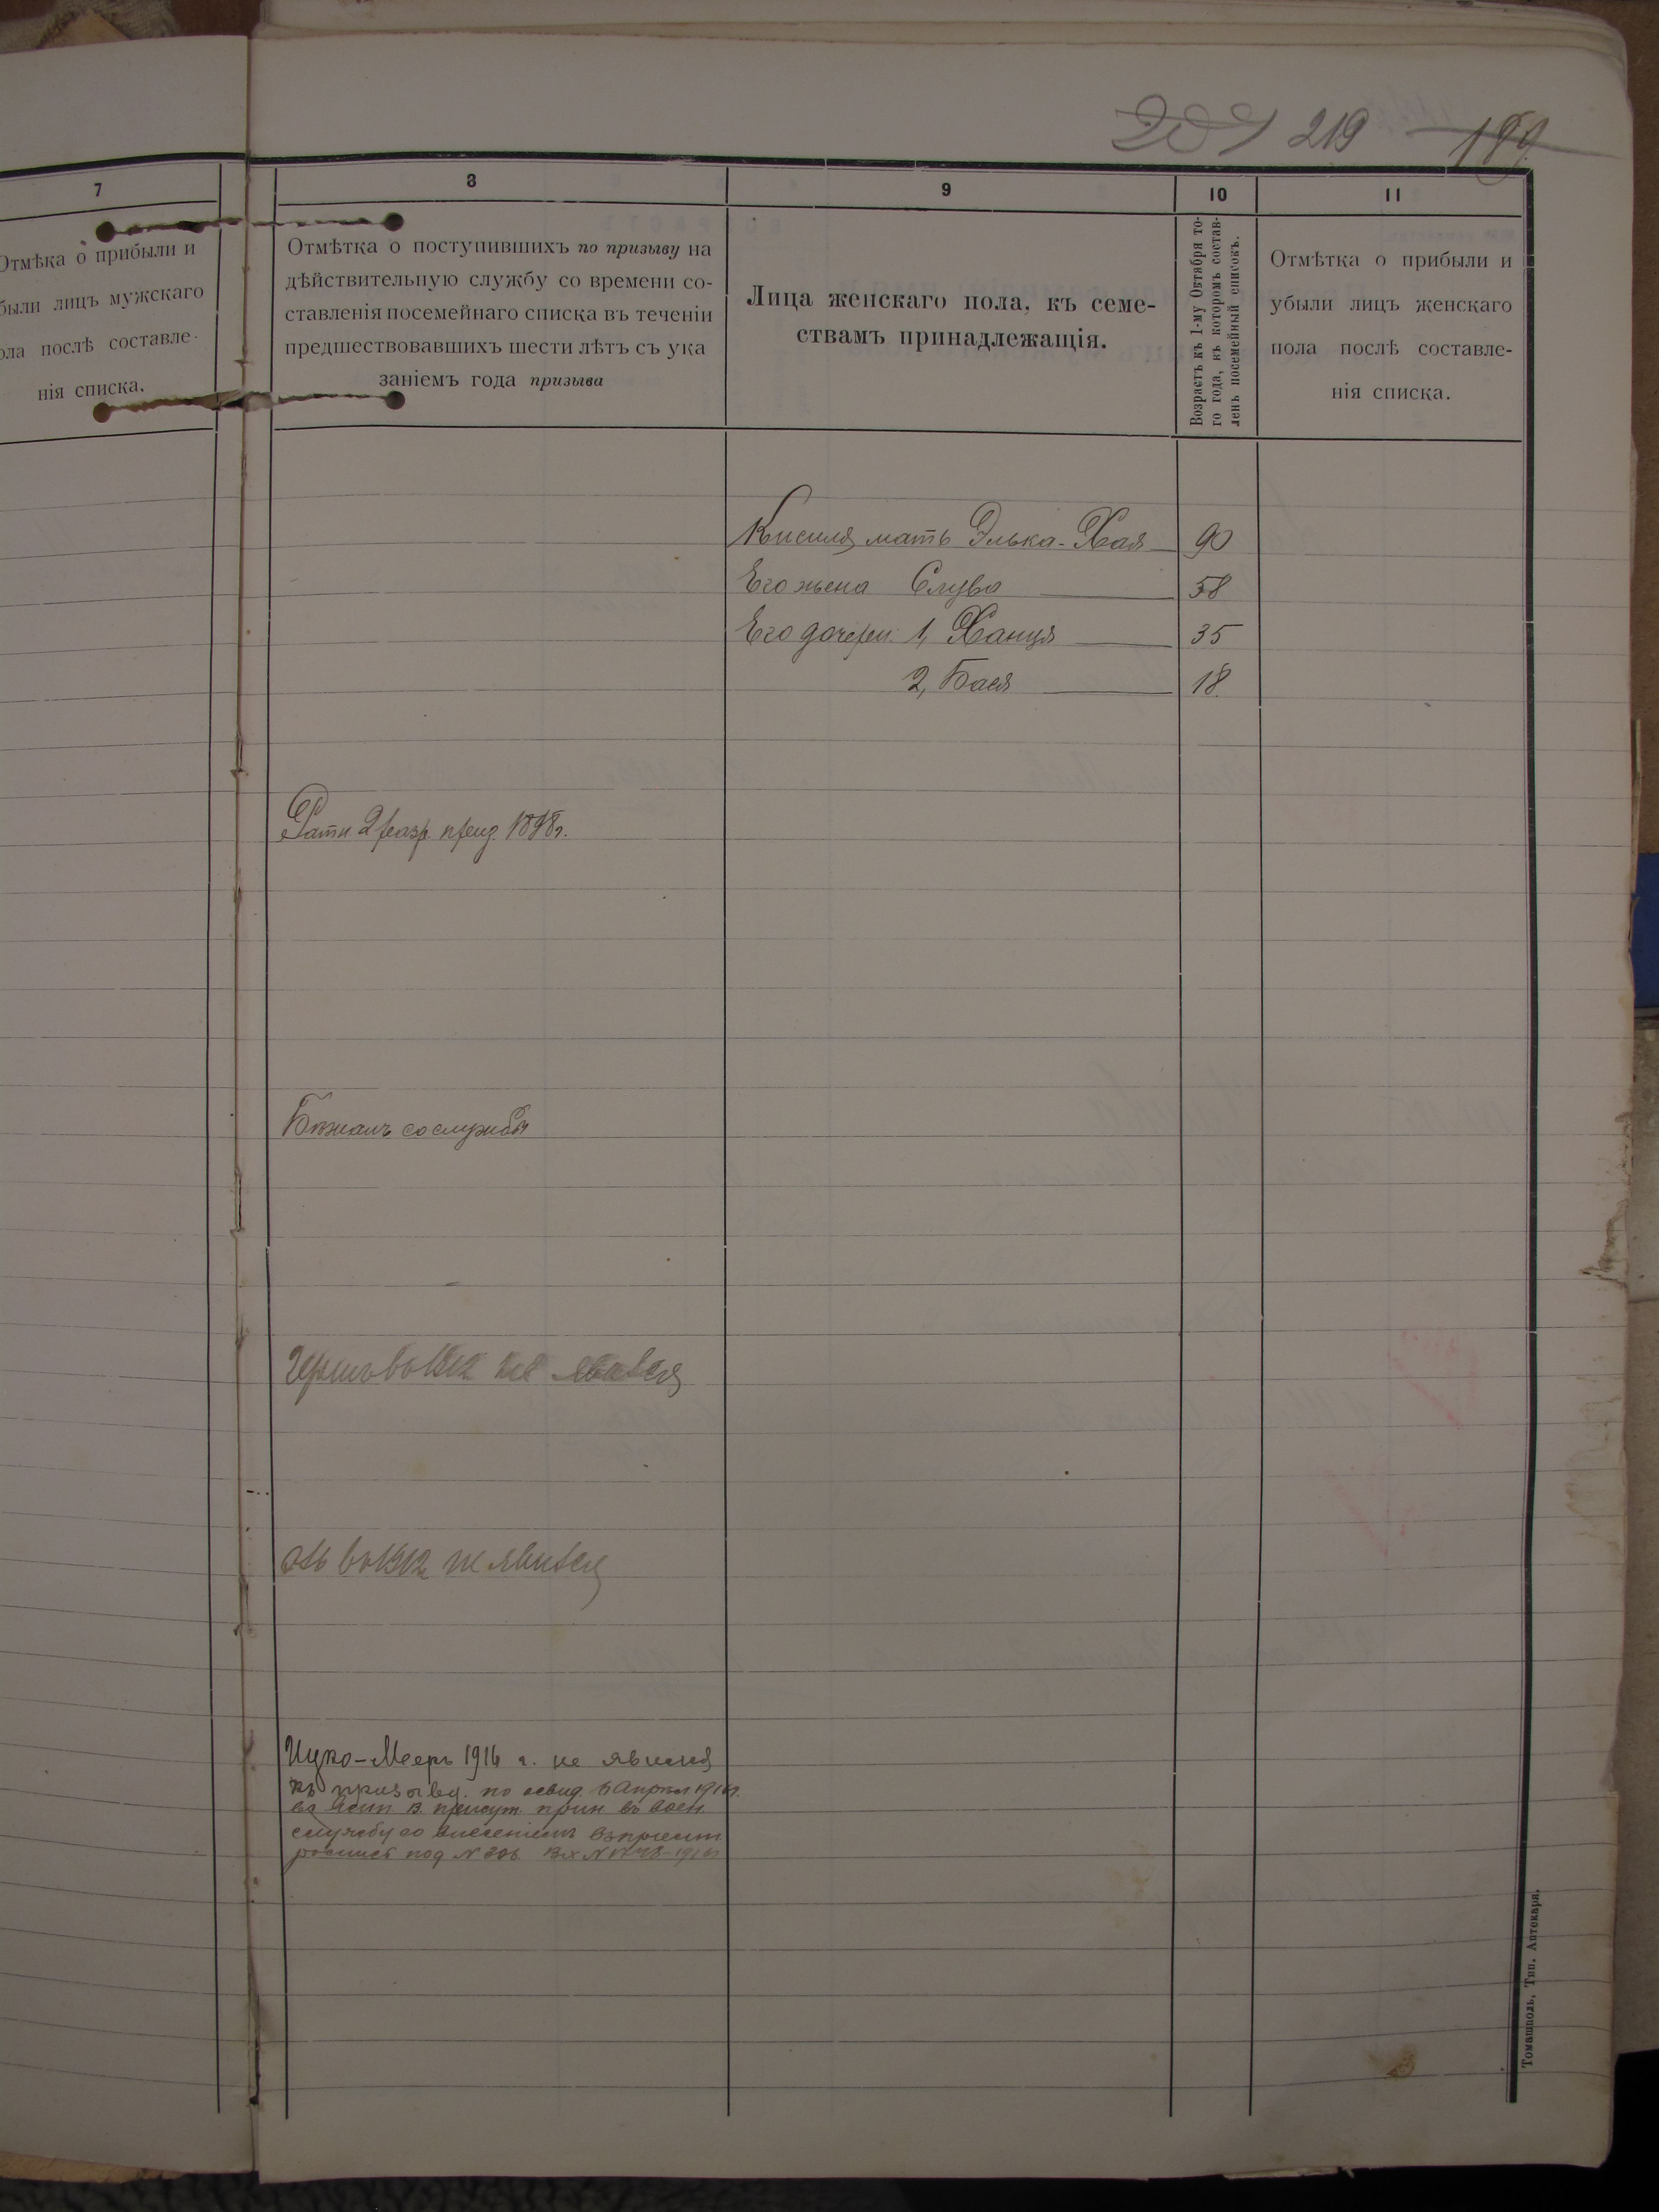 219 189
7
Отмѣка о прибыли и
были лицъ мужскаго
ола послѣ составле-
нія списка.
8
Отмѣтка о поступившихъ по призыву на
дѣйствительную службу со времени со-
ставленія посемейнаго списка въ теченіи
предшествовавшихъ шести лѣтъ съ ука
заніемъ года призыва
9
Лица женскаго пола, къ семе-
ствамъ принадлежащія.
10
Возрастъ къ 1-му Октября то-
го года, къ которомъ состав-
ленъ посемейный списокъ.
11
Отмѣтка о прибыли и
убыли лицъ женскаго
пола послѣ составле-
нія списка.
Кисиля мать Элька-Хая 90
Его жена Слува 58
Его дочери: 1, Ханця 35
2, Бася 18
Ратн 2 разр. приз. 1898 г.
Бѣжалъ со службы
во 1912 не явился
во 1912 не явился
Ицко-Мееръ 1916 г. не явился
къ призыву. по освид. 6 Апрѣля 1916 г.
въ В. присут. прин въ воен.
службу со внесеніемъ въ
под № 306. Вх №
Томашполь, Тип. Аптекаря.